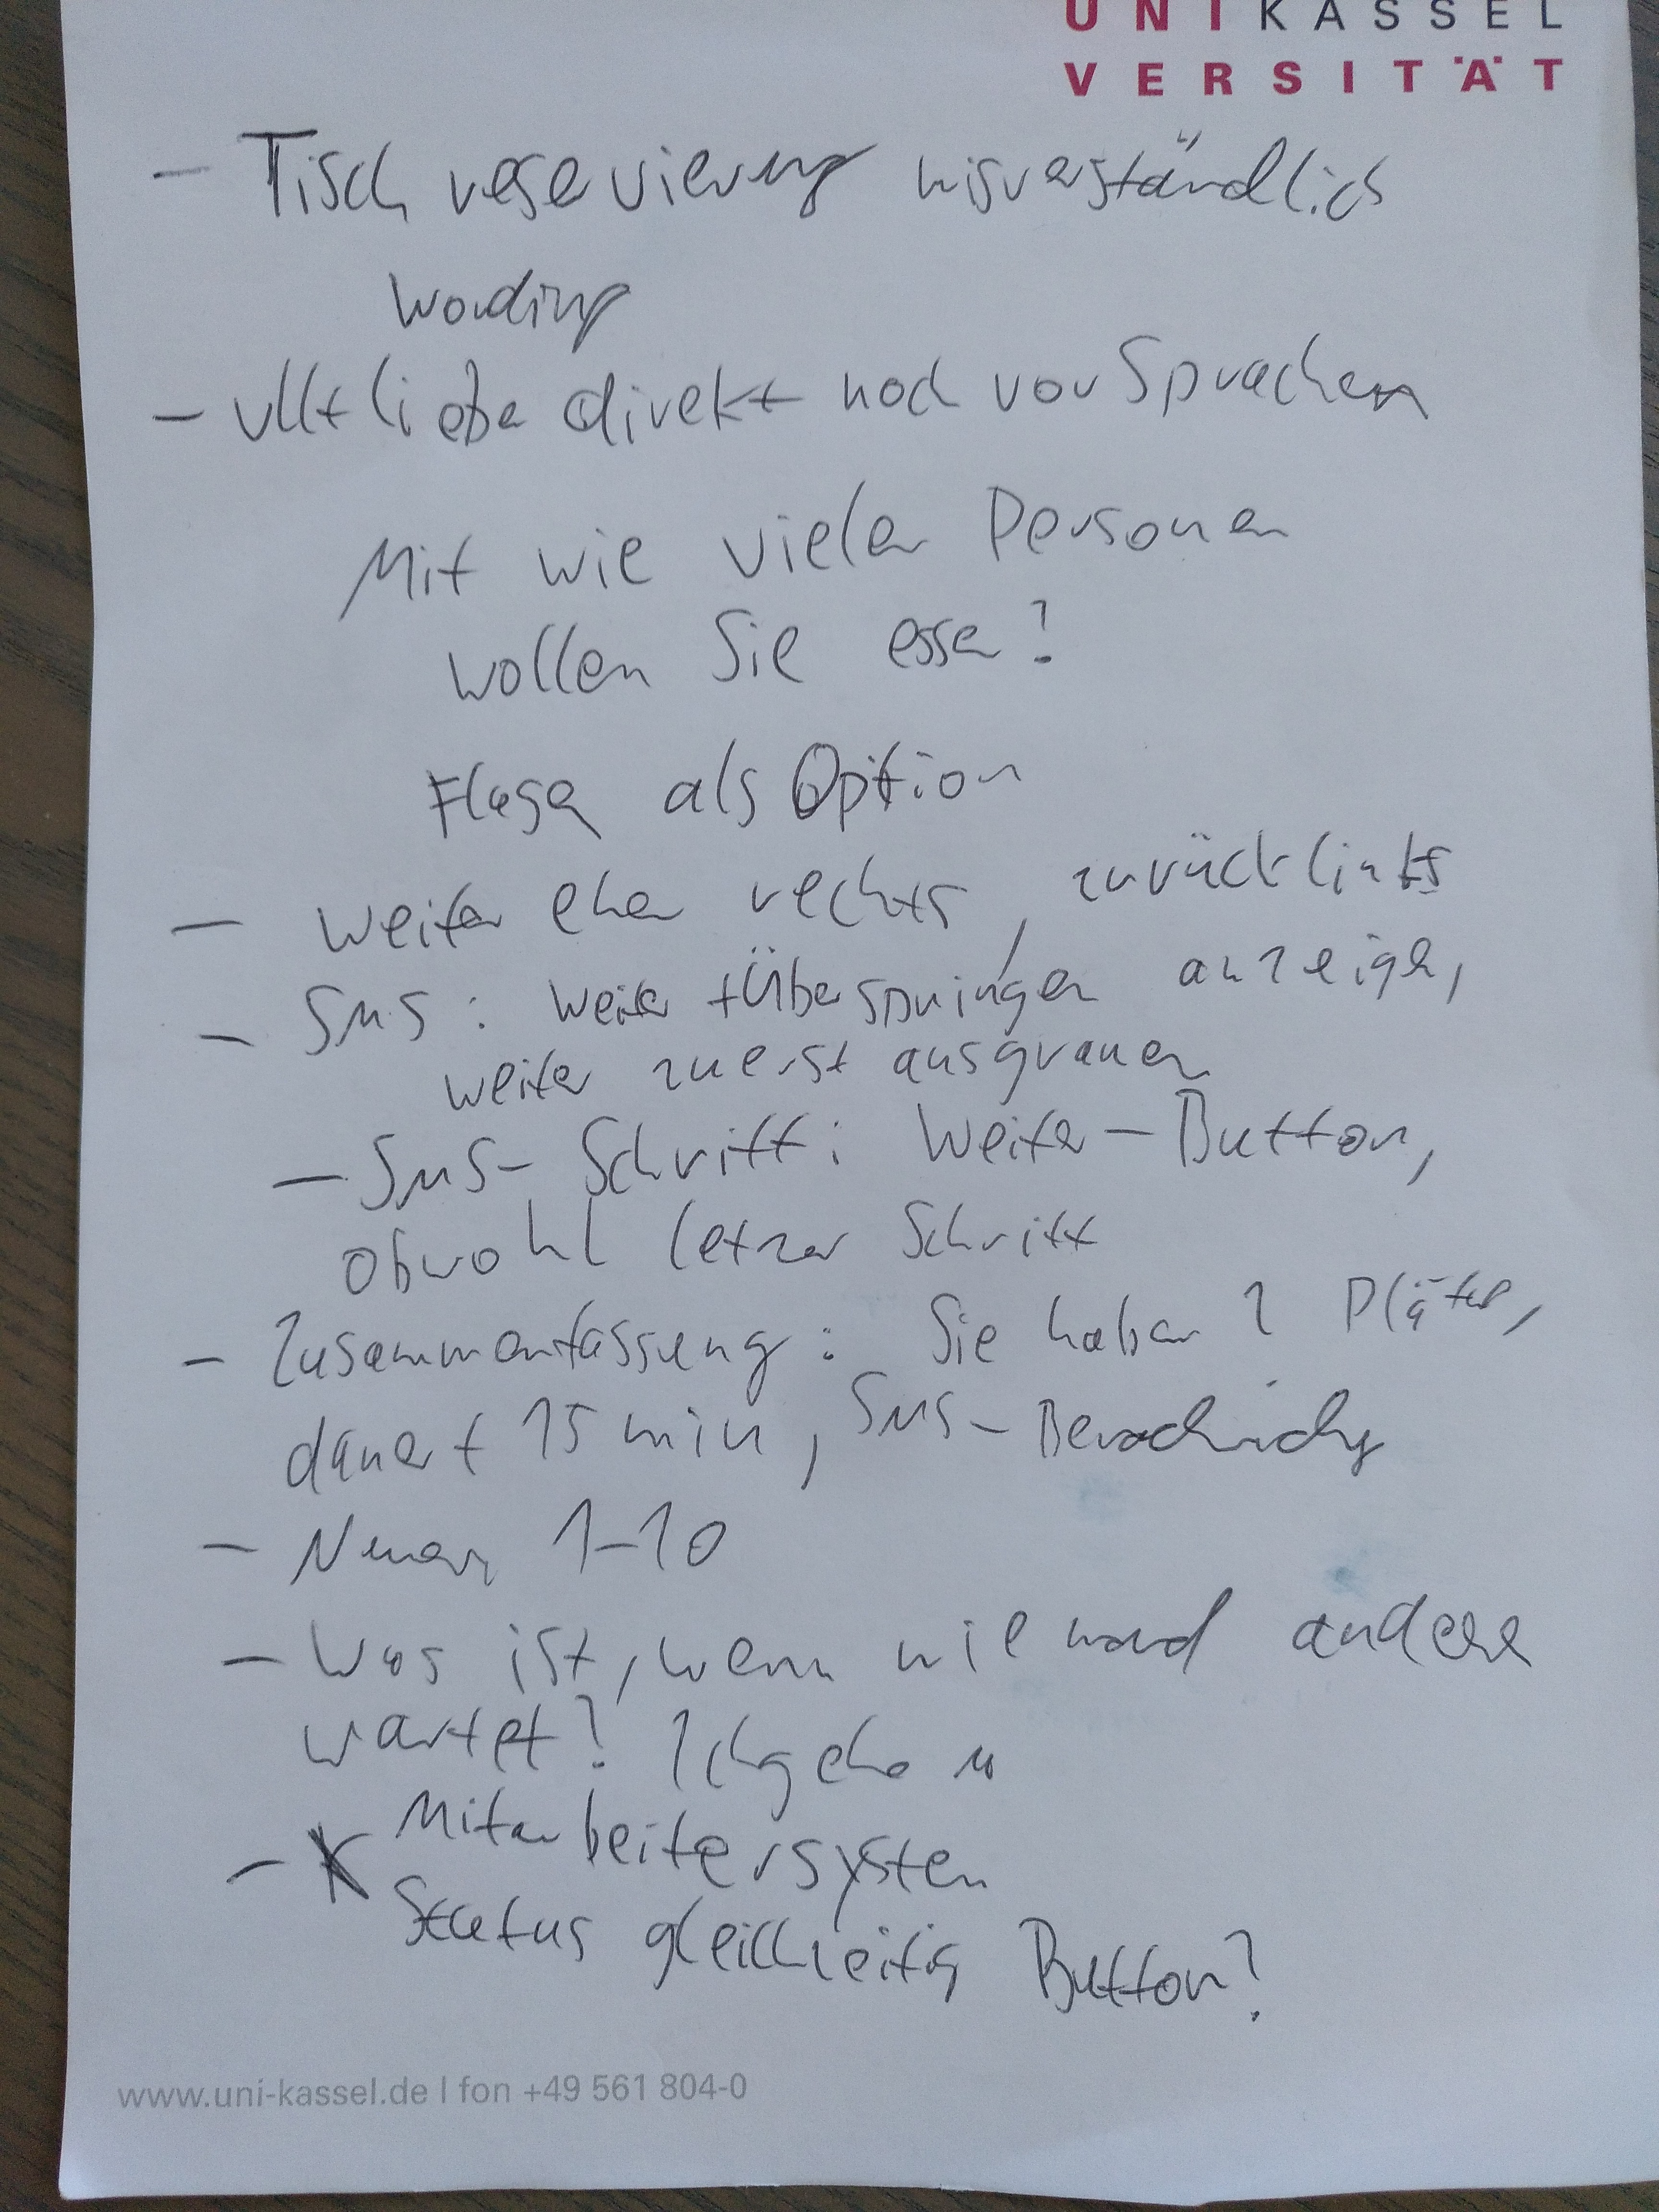 UNIKASSEL
VERSITÄT
- Tischreservierung misverständlich
Wording
- direkt noch vor Sprachen
Mit wie vielen Personen
wollen Sie essen?
als Option
- Weiter eher rechts, zurück links
- SMS: Weiter + Überspringen anzeigen,
weiter zuerst ausgrauen
- SMS-Schritt: Weiter-Button,
obwohl letzter Schritt
- Zusammenfassung: Sie haben 2 Plätze,
dauert 15 min, SMS-
- 1-10
- Was ist, wenn niemand anderes
wartet? Ich gehe
- Mitarbeitersystem
Status gleichzeitig Button?
www.uni-kassel.de | fon +49 561 804-0